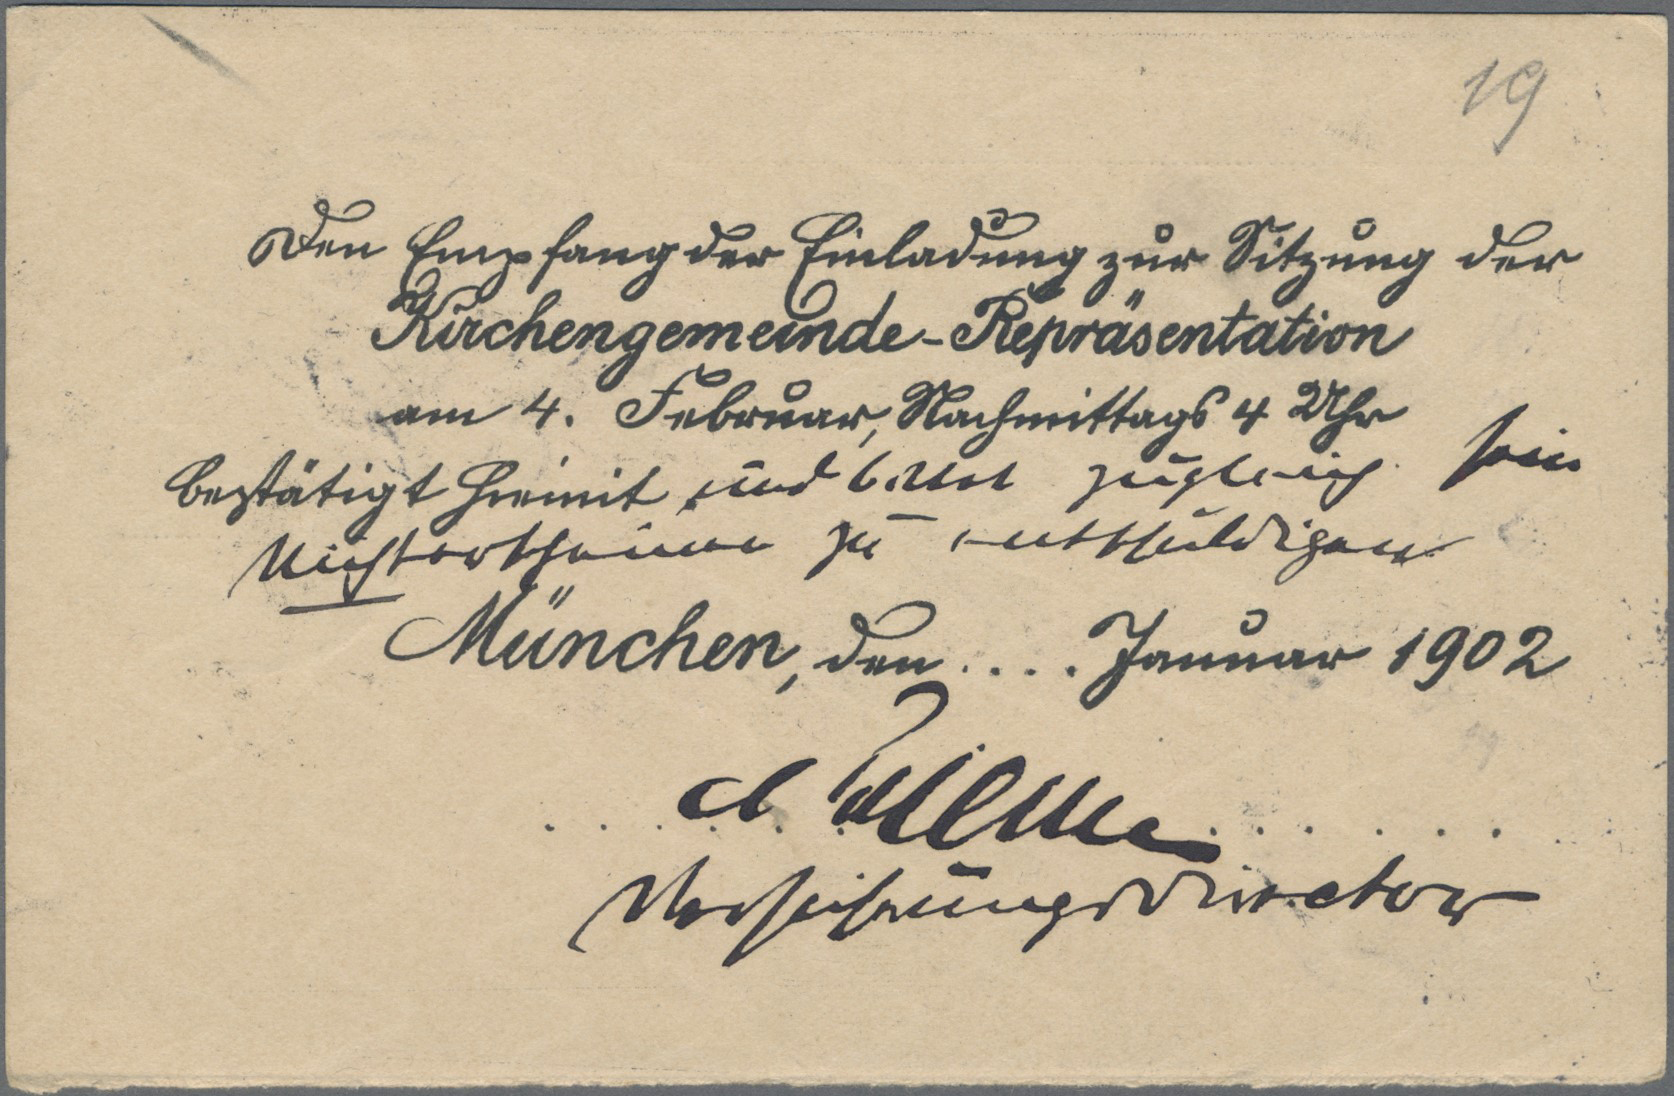 19
Den Empfang der Einladung zur Sitzung der
Kirchengemeinde-Repräsentation
am 4. Februar, Nachmittags 4 Uhr
bestätigt hiemit und bittet zugleich sein
Nichterscheinen zu entschuldigen
München, den .... Januar 1902
Versicherungsdirector